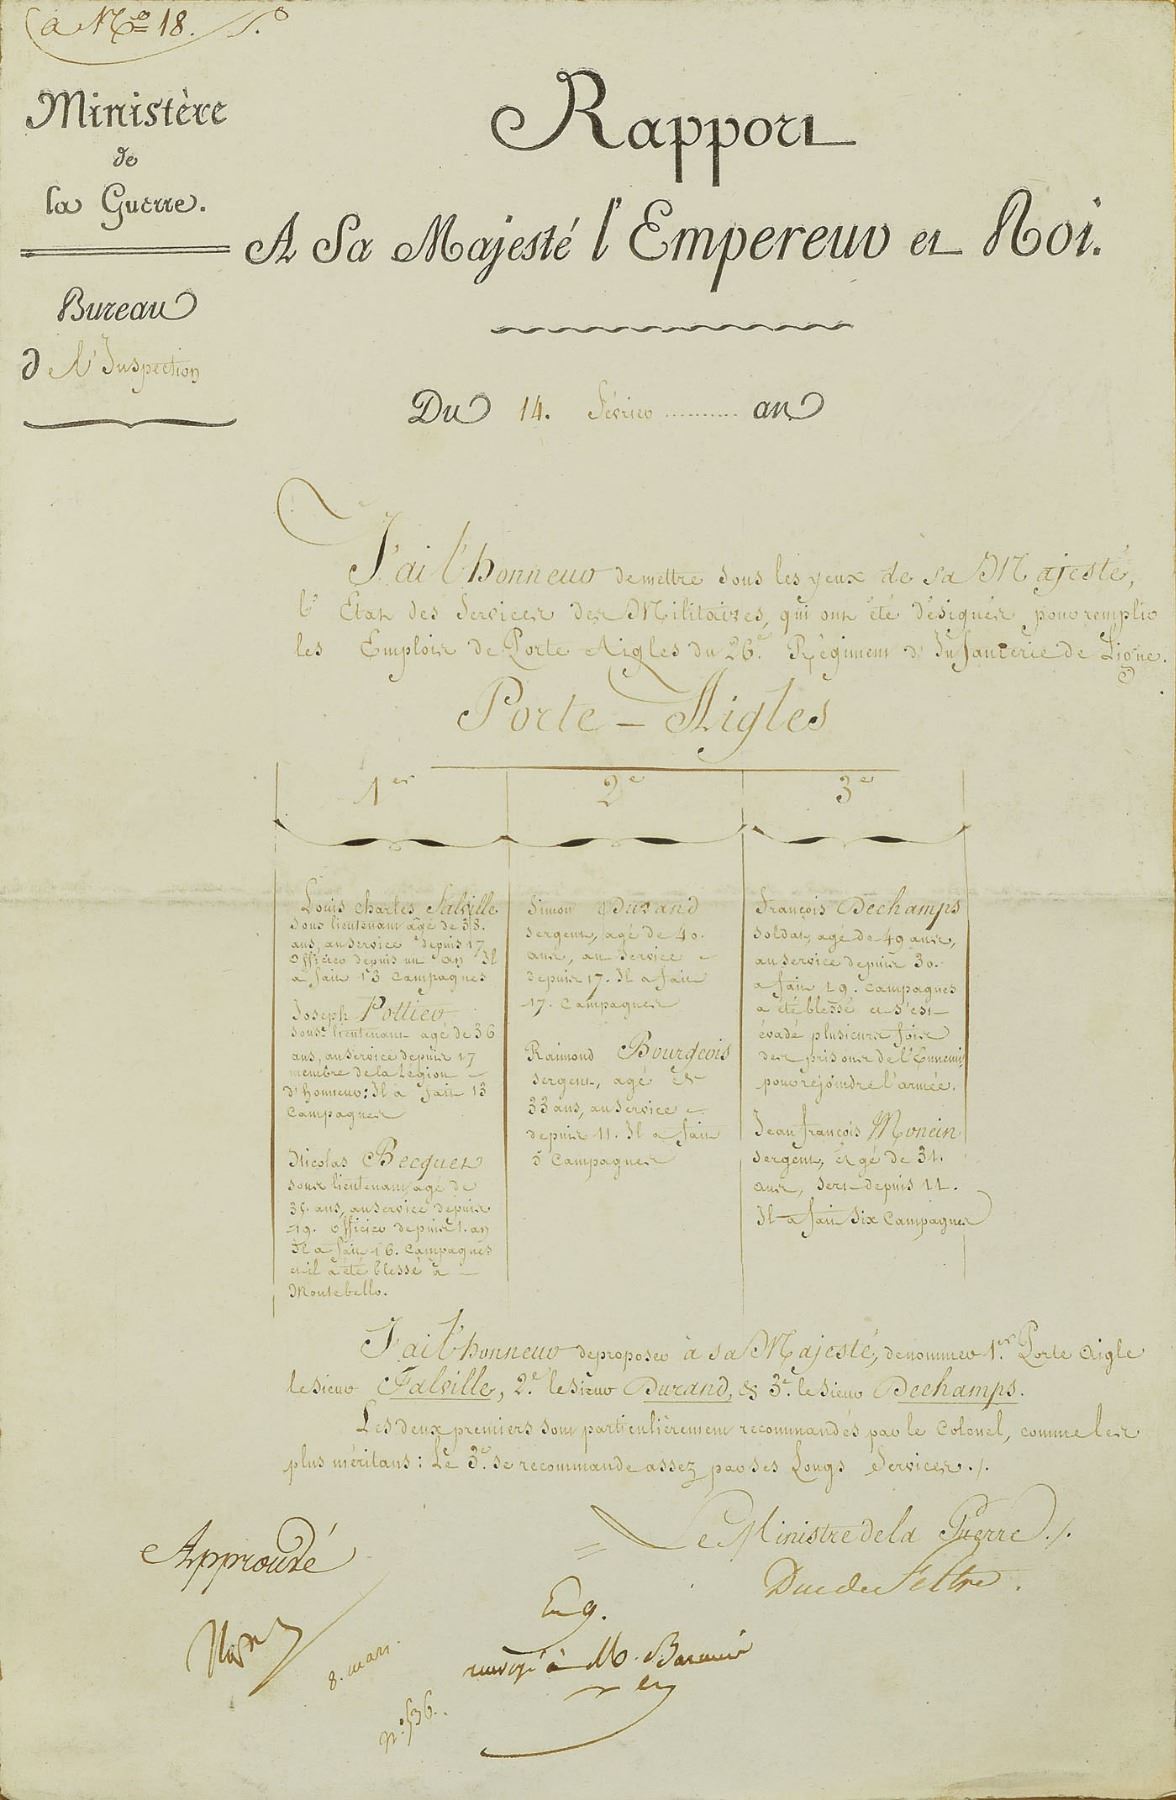 a No 18.
Ministère
de
la Guerre.
Bureau
de l'Inspection
Rapport
A Sa Majesté l'Empereur et Roi.
Du 14. février .......... an
J'ai l'honneur de mettre sous les yeux de sa Majesté,
l'Etat des Services des Militaires, qui ont été désignés pour remplir
les Emplois de Porte Aigles du 26e. Régiment d'Infanterie de Ligne.
Porte-Aigles
1er
Louis Charles Salville
Sous lieutenant agé de 38.
ans, au service depuis 17
officier depuis un an Il
a fait 13 Campagnes
Joseph Pottier
sous lieutenant agé de 36
ans, au service depuis 17
membre de la Légion
d'honneur; Il a fait 13
Campagnes
Nicolas Becquet
sous lieutenant agé de
35. ans, au service depuis
19. officier depuis 1. an
Il a fait 16. Campagnes
et il a été blessé à
Montebello.
2e
Simon Durand
sergent, agé de 40.
ans, au service
depuis 17. Il a fait
17. Campagnes
Raimond Bourgeois
sergent, agé de
33 ans, au service
depuis 11. Il a fait
5 Campagnes
3e
François Dechamps
soldat, agé de 49 ans,
au service depuis 30.
a fait 19. Campagnes
a été blessé et s'est
évadé plusieurs fois
des prisons de l'Ennemi
pour rejoindre l'armée.
Jean françois Moncin
sergent, agé de 31.
ans, sert depuis 11.
Il a fait six Campagnes
J'ai l'honneur de proposer à sa Majesté, de nommer 1er. Porte aigle
le sieur Falville, 2e. le sieur Durand, & 3e. le sieur Dechamps.
Les deux premiers sont particulièrement recommandés par le Colonel, comme les
plus méritans: Le 3e. se recommande assez par ses Longs Services./.
Le Ministre de la Guerre./.
Duc de Feltre.
Approuvé
8. mars.
No. 536.
Eng.
renvoyé à M.